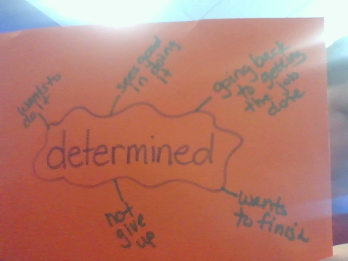 wants to
do it
sees good
in doing
it
going back
to getting
the job
done
determined
not
give
up
wants
to finish